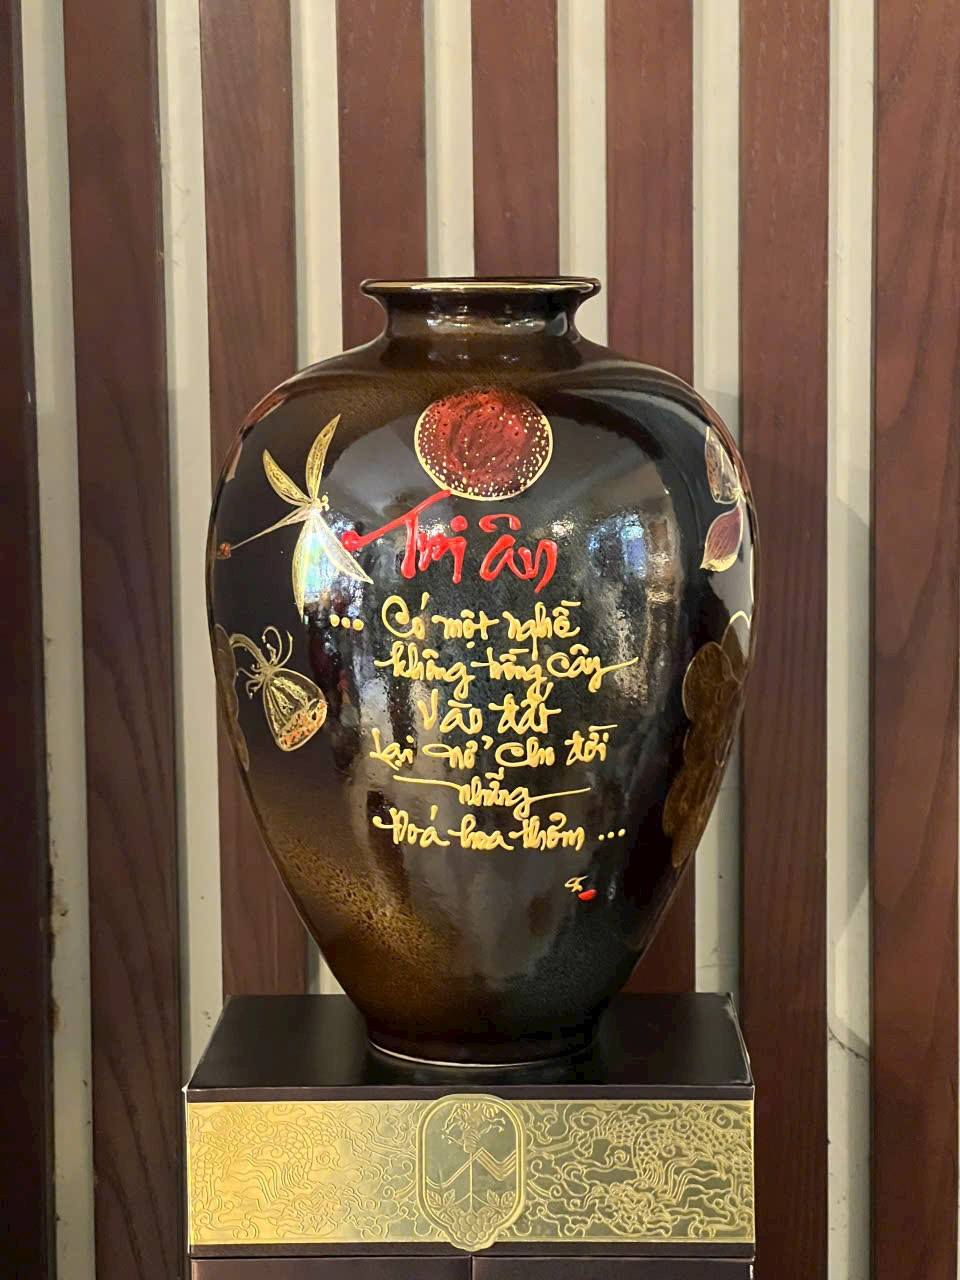 Tri ân
... Có một nghề
không trồng cây
vào đất
Lại nở cho đời
những
Đoá hoa thơm ...